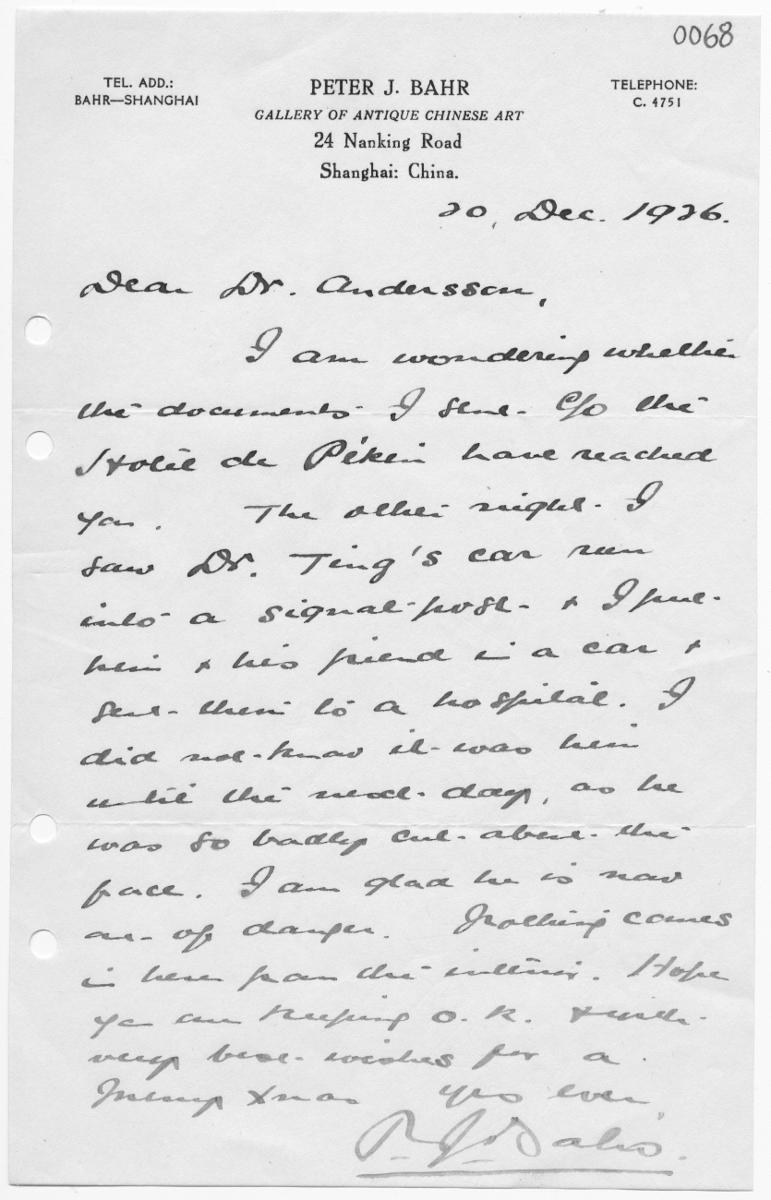 0068
TEL. ADD.:
BAHR—SHANGHAI
PETER J. BAHR
GALLERY OF ANTIQUE CHINESE ART
24 Nanking Road
Shanghai: China.
TELEPHONE:
C. 4751
20, Dec. 1926.
Dear Dr. Andersson,
I am wondering whether
the documents I sent c/o the
Hotel de Pékin have reached
you. The other night I
saw Dr. Ting's car run
into a signal-post & I put
him & his friend in a car &
sent them to a hospital. I
did not know it was him
until the next day, as he
was so badly cut about the
face. I am glad he is now
out of danger. Nothing comes
in here from the interior. Hope
you are keeping O.K. & with
very best wishes for a
Merry Xmas yrs ever
P. J. Bahr.